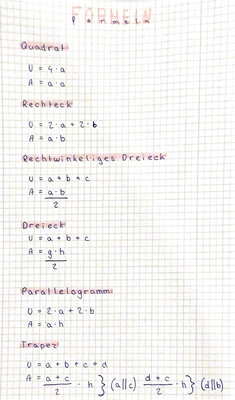 FORMELN
Formeln
Quadrat
U = 4·a
A = a·a
Rechteck
U = 2·a + 2·b
A = a·b
Rechtwinkeliges Dreieck
U = a + b + c
A = a·b
2
Dreieck
U = a + b + c
A = g·h
2
Parallelogramm
U = 2·a + 2·b
A = a·h
Trapez
U = a + b + c + d
A = a + c / 2 · h } (a||c) d + c / 2 · h } (d||b)